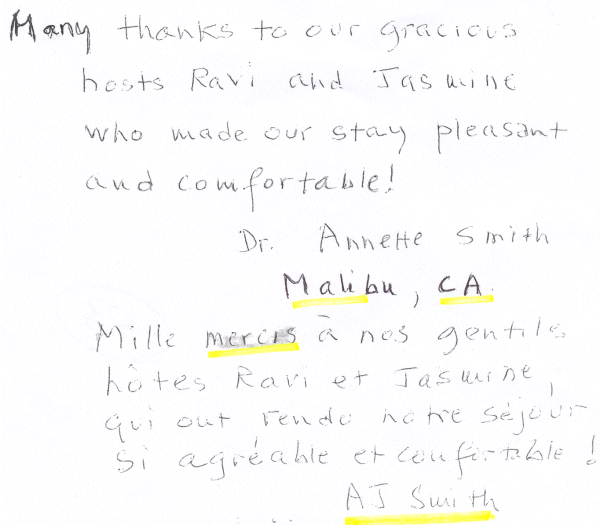 Many thanks to our gracious
hosts Ravi and Jasmine
who made our stay pleasant
and comfortable!
Dr. Annette Smith
Malibu, CA.
Mille mercis à nos gentils
hôtes Ravi et Jasmine,
qui ont rendu notre séjour
si agréable et confortable !
AJ Smith